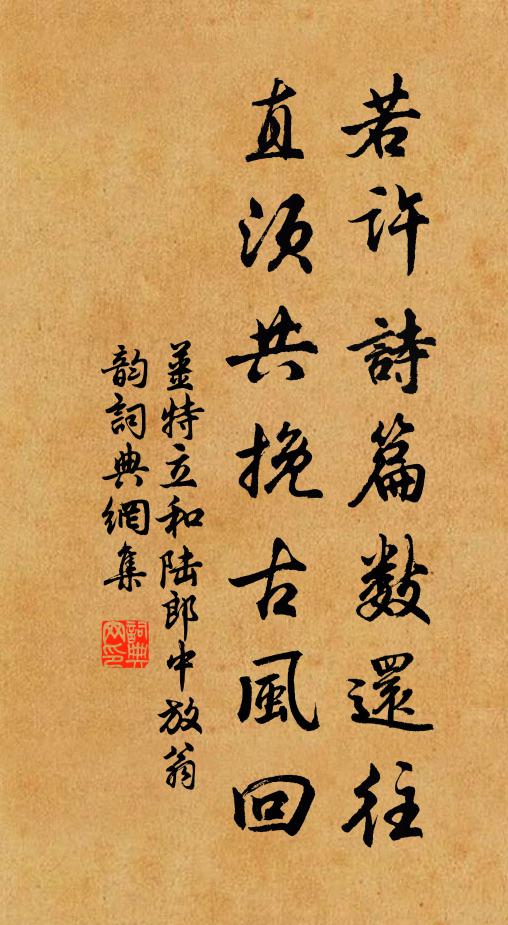 若許詩篇數還往
直須共挽古風回
姜特立和陸郎中放翁
韵詞典網集
詞典網印